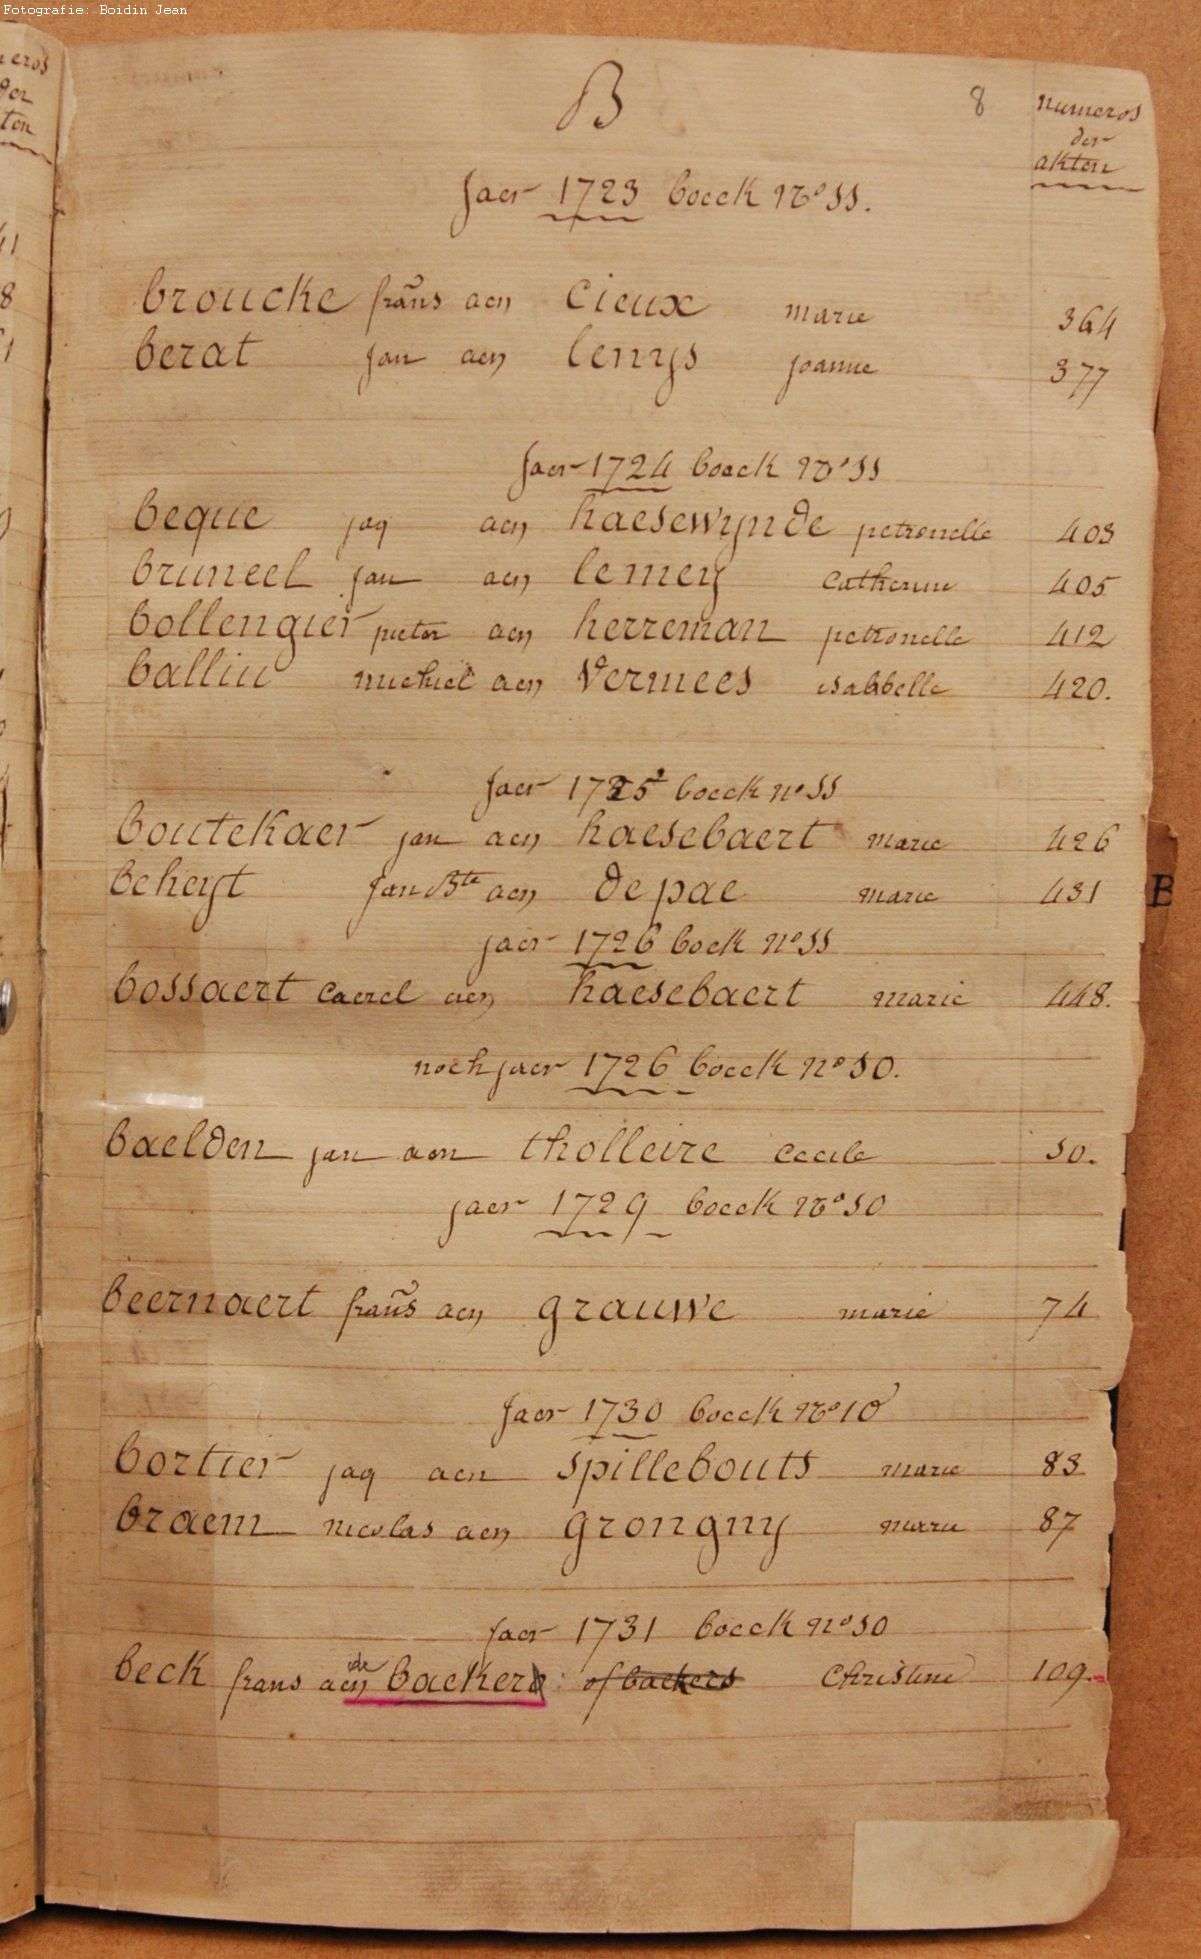 Fotografie: Boidin Jean
B
8
numeros
der
akten
Jaer 1723 boeck No SS.
broucke frans aen cieux marie 364
berat jan aen lenys joanne 377
Jaer 1724 boeck No SS
beque jaq aen haesewynde petronelle 403
bruneel jan aen lemey catherine 405
bollengier pieter aen herreman petronelle 412
balliu michiel aen vermees isabbelle 420.
Jaer 1725 boeck no SS
boutekaer jan aen haesebaert marie 426
beheyt Jan Bte aen de pae marie 431
jaer 1726 boek No SS
bossaert caerel aen haesebaert marie 448.
noch jaer 1726 boeck No 50.
baelden jan aen tholleire cecile 50.
jaer 1729 boeck No 50
beernaert frans aen grauwe marie 74
Jaer 1730 boeck No 10
bortier jaq aen spillebouts marie 83
braem nicolas aen grongny marie 87
jaer 1731 boeck No 50
beck frans aen de backer of backers Christine 109.
B